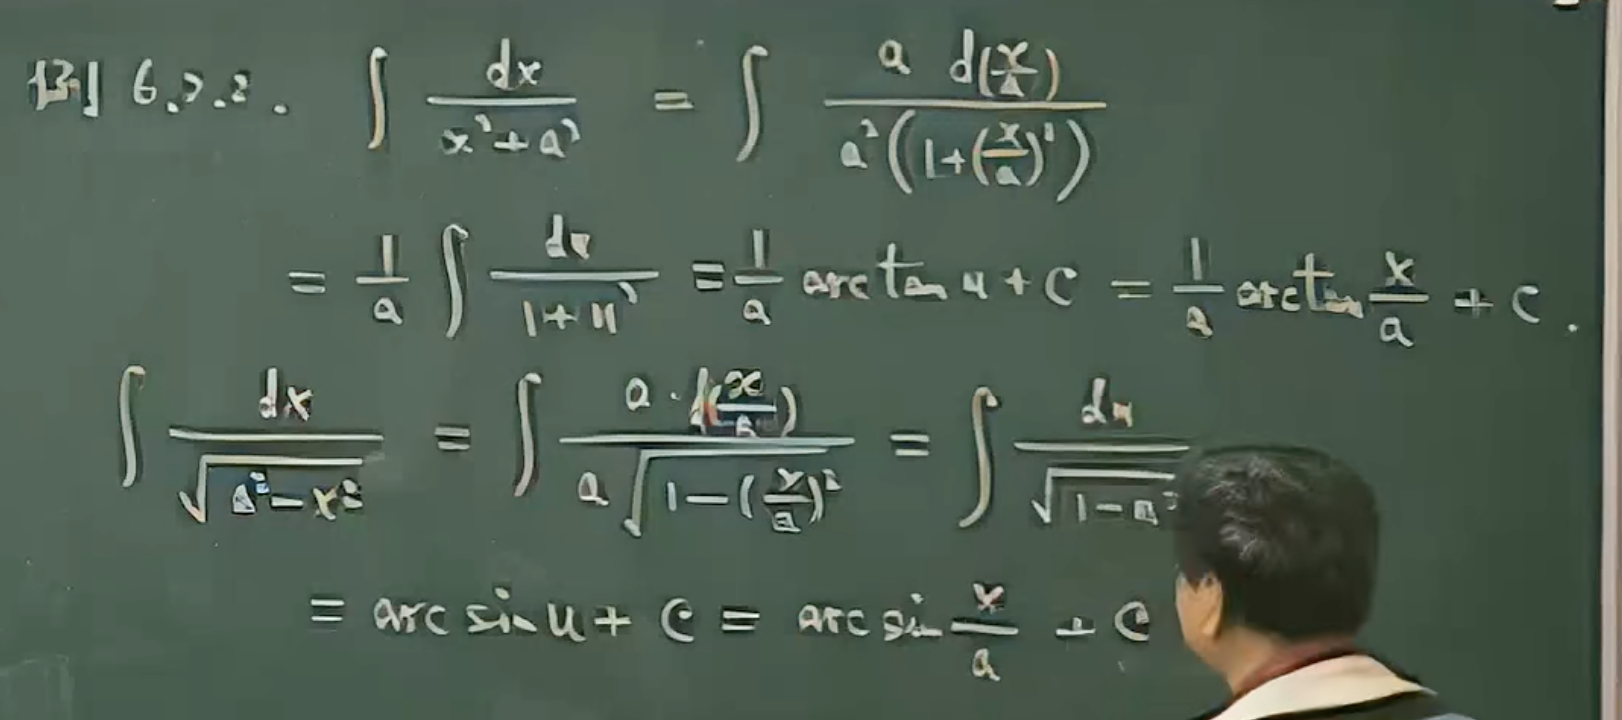 例 6.2.2. ∫ dx/(x²+a²) = ∫ a d(x/a)/(a²(1+(x/a)²))
= 1/a ∫ du/(1+u²) = 1/a arctan u + C = 1/a arctan x/a + C.
∫ dx/√(a²-x²) = ∫ a·d(x/a)/(a√(1-(x/a)²)) = ∫ du/√(1-u²
= arcsin u + C = arcsin x/a + C